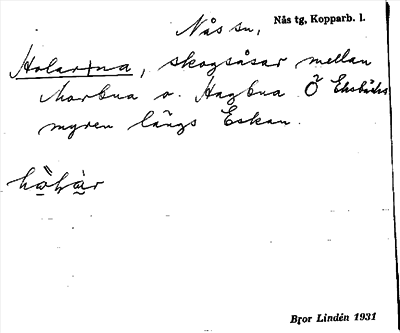 Nås sn, Nås tg, Kopparb. l.
Holarna, skogsåsar mellan
Morbua o. Hagbua Ö Eksbäcks
myren längs Eskan.
Bror Lindén 1931